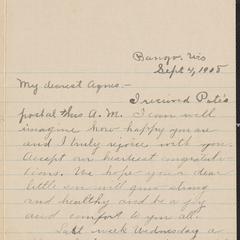 Bangor, Wis
Sept 4, 1905
My dearest Agnes:-
I received Pate's
postal this A.M. I can well
imagine how happy you are
and I truly rejoice with you.
Accept our heartiest congratula-
tions. We hope your dear
little son will grow strong
and healthy and be a joy
and comfort to you all.
Last week Wednesday a